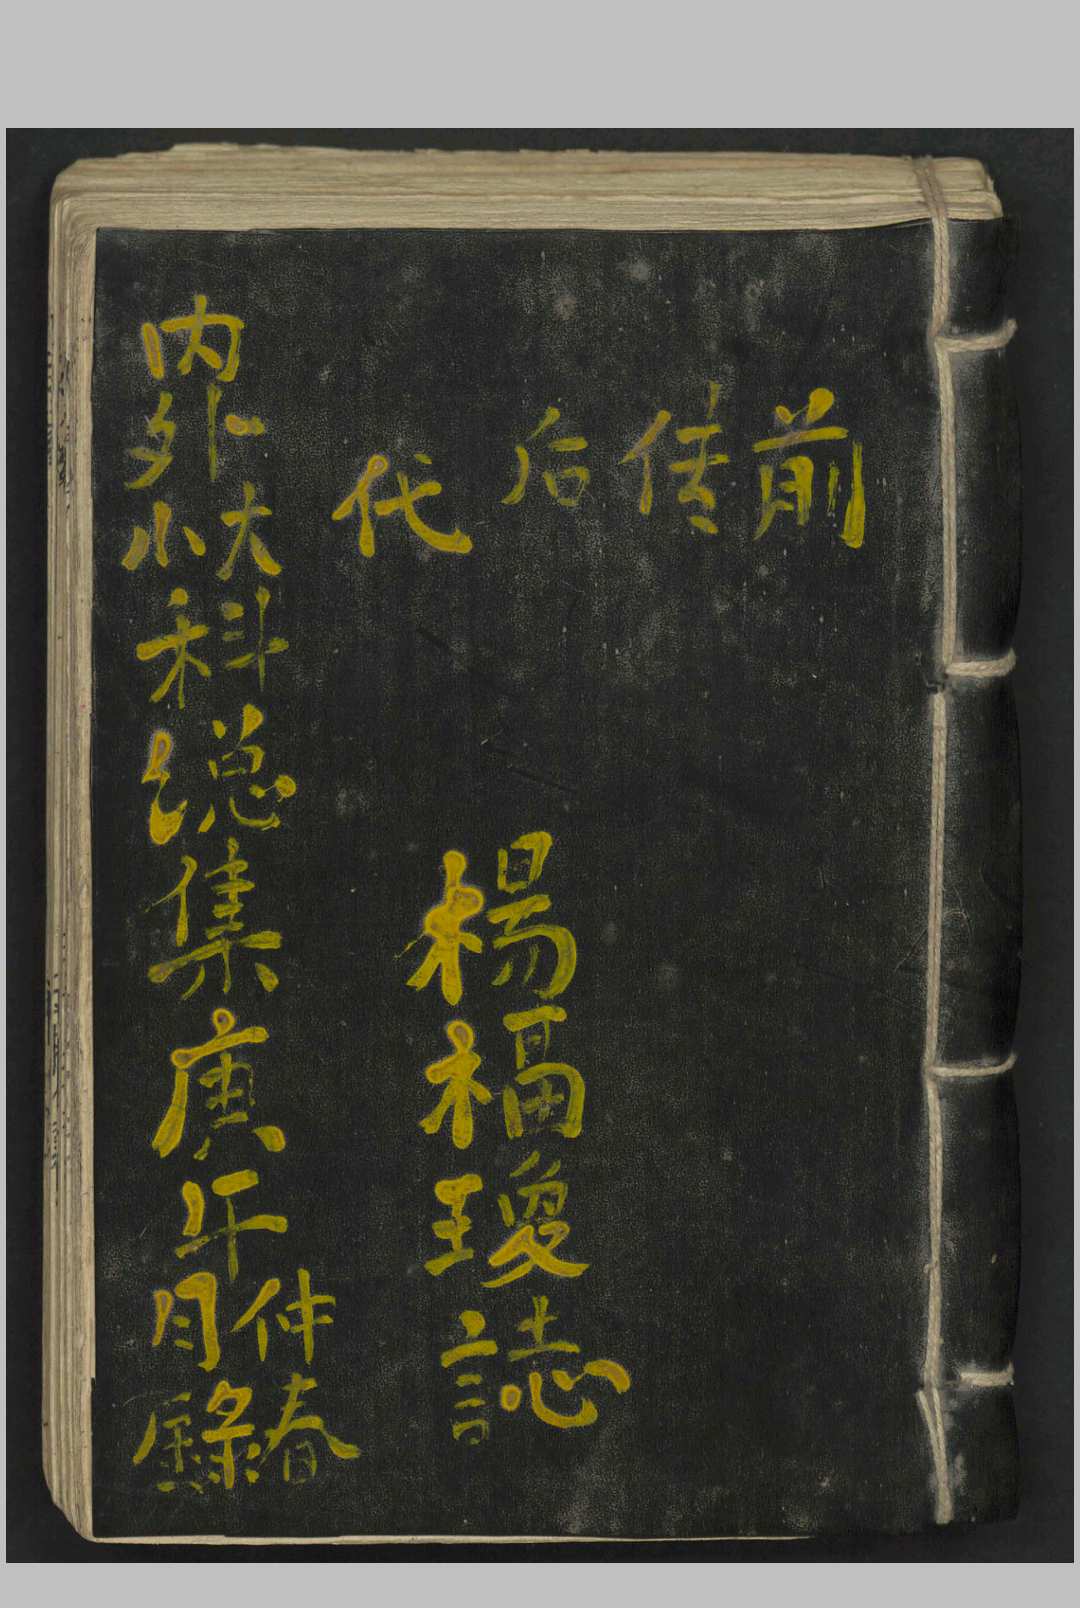 前传后代
楊福瓊誌
内外大小科总集庚午仲春月錄